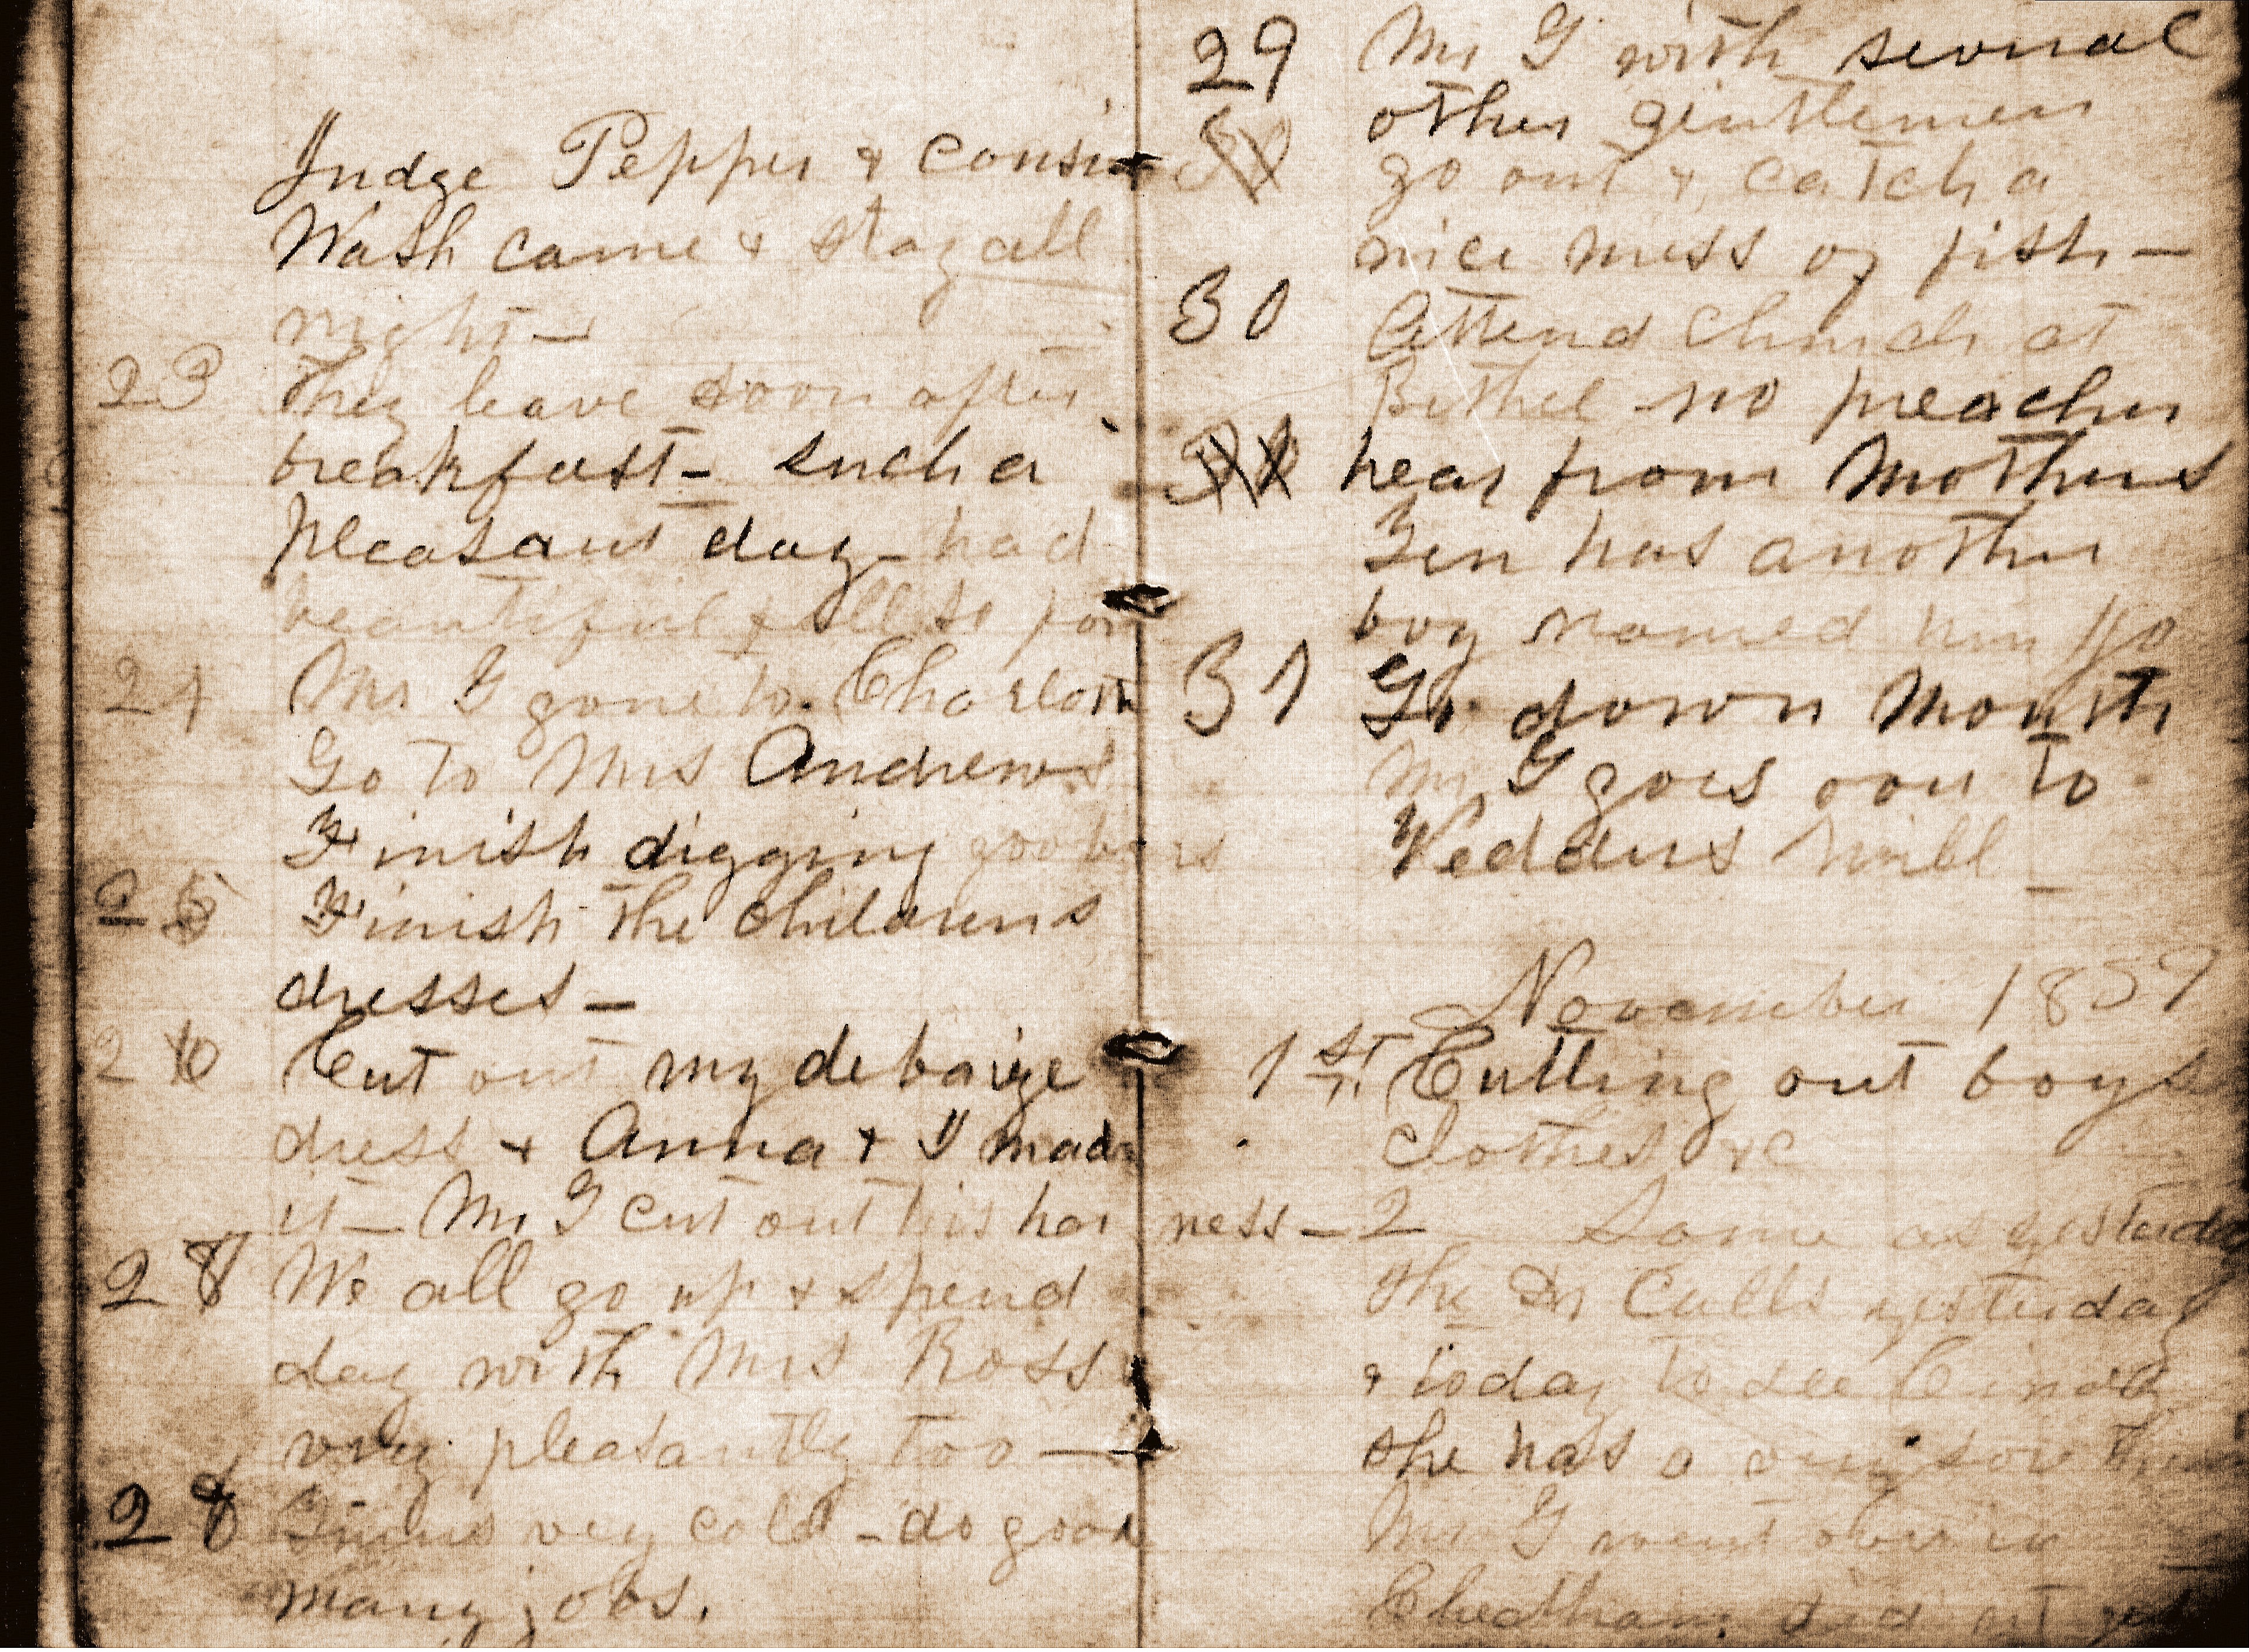 Judge Pepper & cousin
Wash came & stay all
night –
23 They leave soon after
breakfast – such a
pleasant day – had
beautiful
24 Mr G gone to Charlott
Go to Mrs Andrews
Finish digging goobers
25 Finish the childrens
dresses –
26 Cut out my debaige
dress & Anna & I made
it – Mr G cut out his harness –
27 We all go up & spend
day with Mrs Ross
very pleasantly too –
28 very cold – do good
many jobs.
29 Mr G with several
other gentlemen
go out & catch a
nice mess of fish –
30 Attend church at
Bethel no preacher
hear from Mothers
has another
boy named him
31 Go down
Mr G goes over to
mill –
November 1859
1st Cutting out boys
clothes &c
2 Same as yesterday
The Dr calls yesterday
& today to see
she has a very sore
Mr G went over to
Cheatham did not get